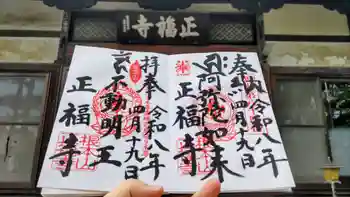 正福寺
奉拝
令和八年
四月十九日
阿弥陀如来
正福寺
拝奉
令和八年
四月十九日
不動明王
正福寺